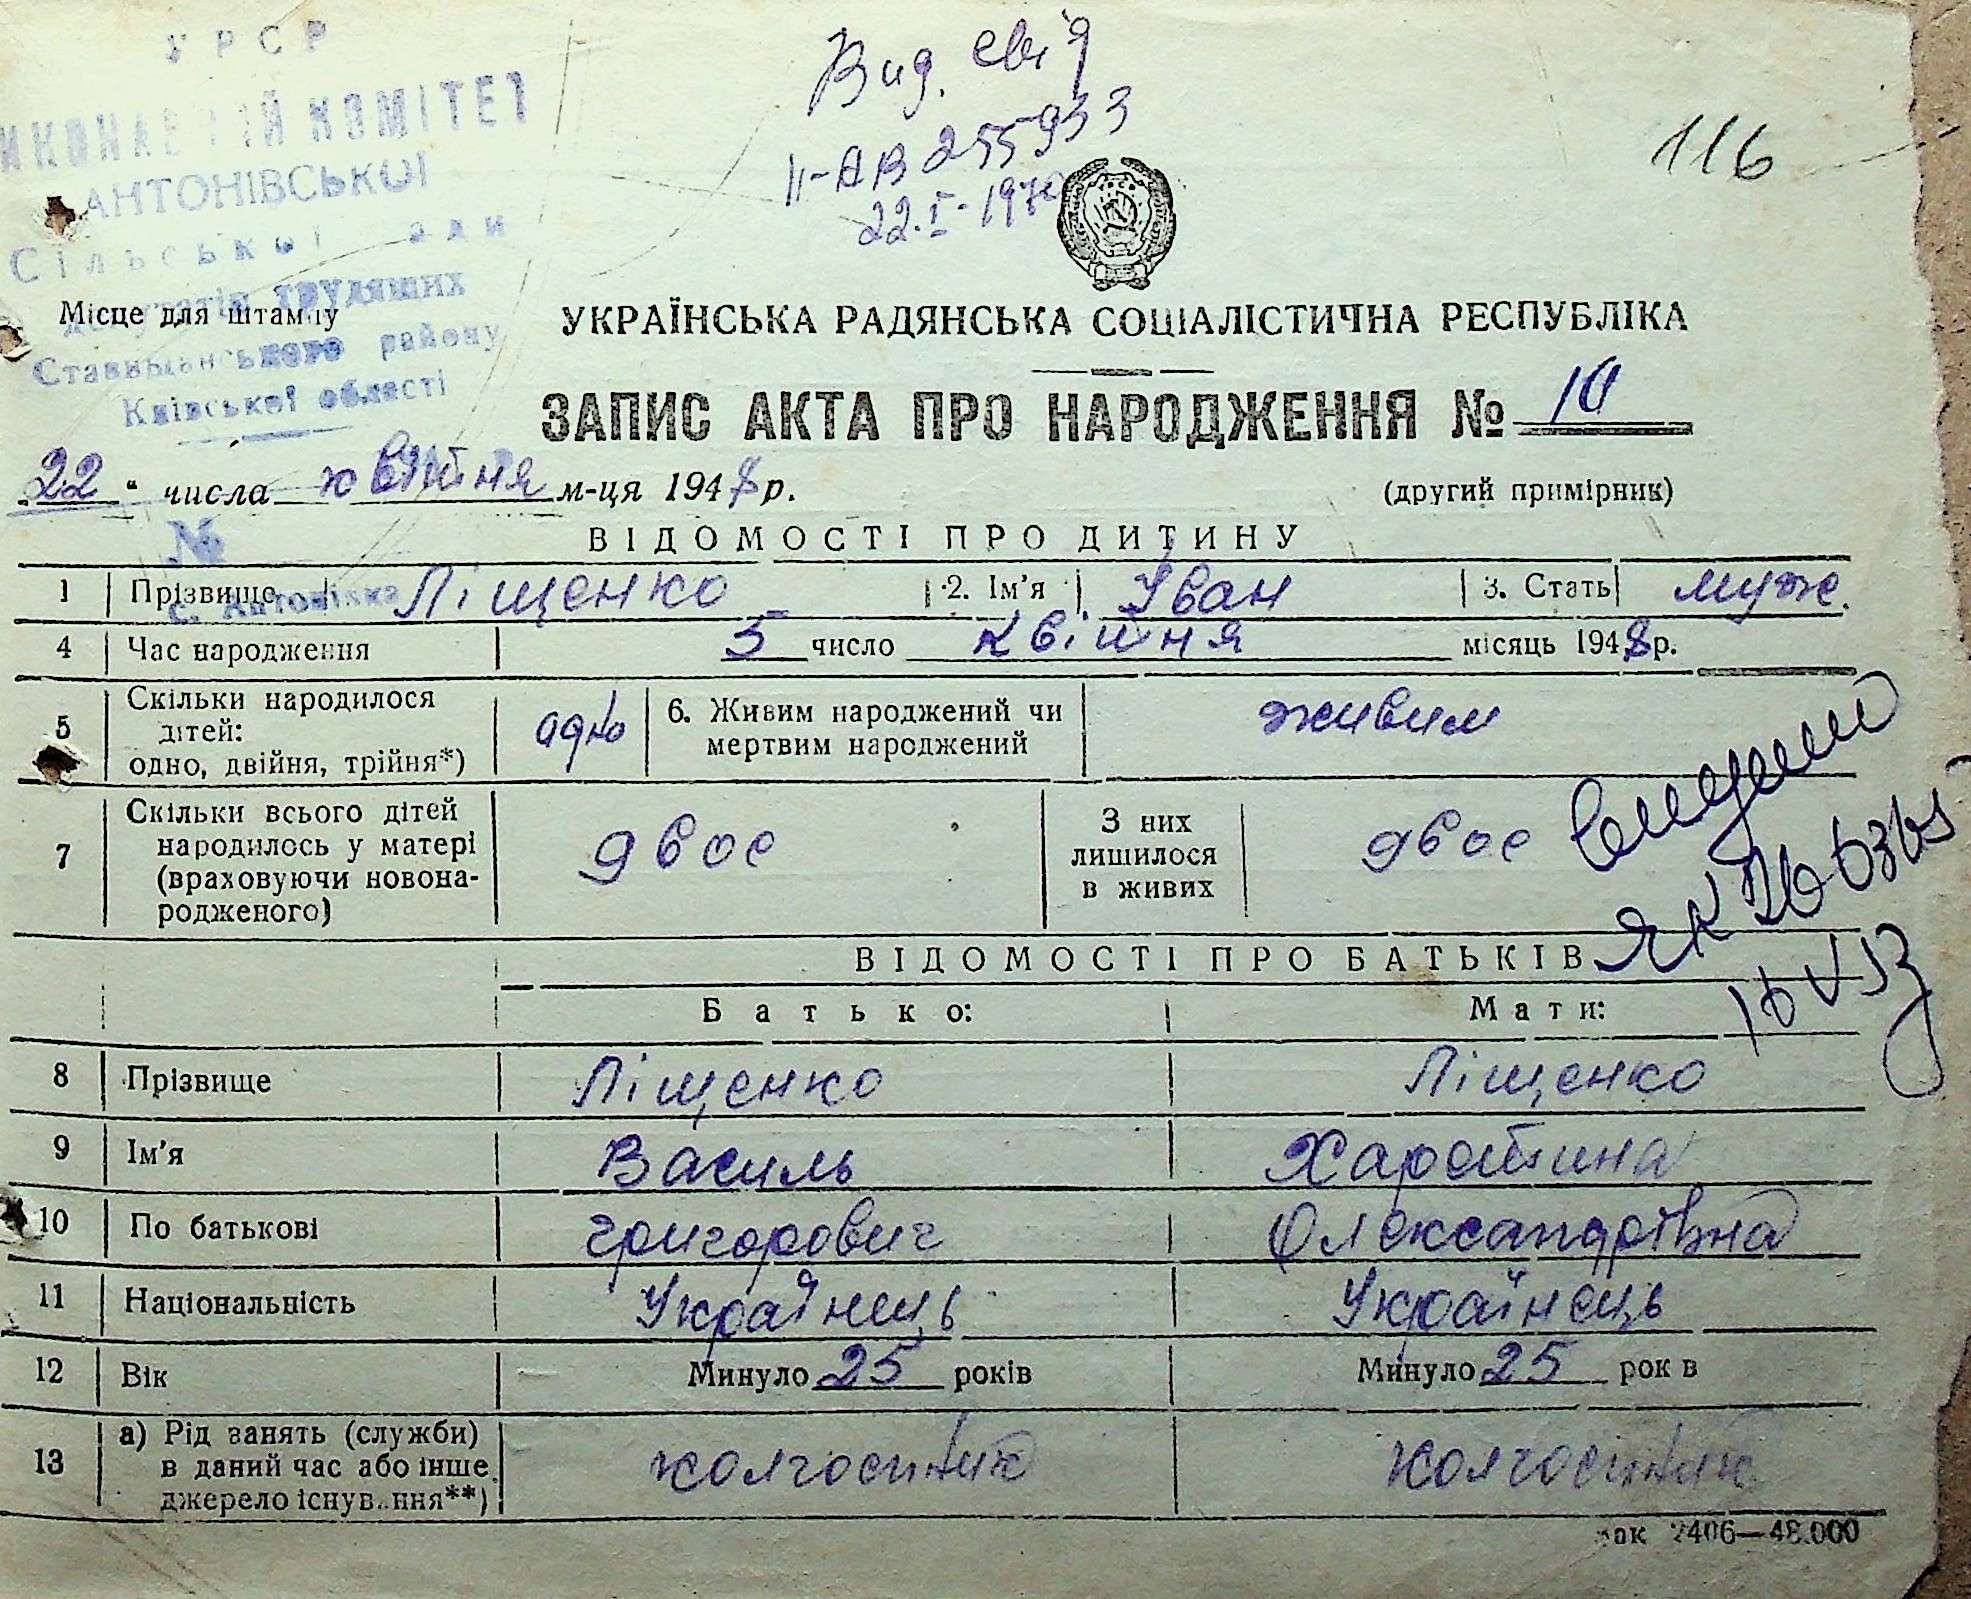 УРСР
ВИКОНАВЧИЙ КОМІТЕТ
АНТОНІВСЬКОЇ
Сільської Ради
депутатів трудящих
Ставищанського району
Київської області
№
с. Антонівка
Вид. свід
II-АВ 255933
22.I-1970
116
Місце для штампу
УКРАЇНСЬКА РАДЯНСЬКА СОЦІАЛІСТИЧНА РЕСПУБЛІКА
ЗАПИС АКТА ПРО НАРОДЖЕННЯ № 10
22 " числа квітня м-ця 1948 р.
(другий примірник)
ВІДОМОСТІ ПРО ДИТИНУ
1 Прізвище Ліщенко 2. Ім'я Іван 3. Стать муж.
4 Час народження 5 число квітня місяць 1948 р.
5 Скільки народилося дітей: одно, двійня, трійня*) одно 6. Живим народжений чи мертвим народжений живим
7 Скільки всього дітей народилось у матері (враховуючи новонародженого) двоє З них лишилося в живих двоє
ЯК
ВІДОМОСТІ ПРО БАТЬКІВ
Батько: Мати:
8 Прізвище Ліщенко Ліщенко
9 Ім'я Василь Харетина
10 По батькові Григорович Олександрівна
11 Національність Українець Українець
12 Вік Минуло 25 років Минуло 25 років
13 а) Рід занять (служби) в даний час або інше джерело існування**) колгоспник колгоспник
Зак 2406—48.000